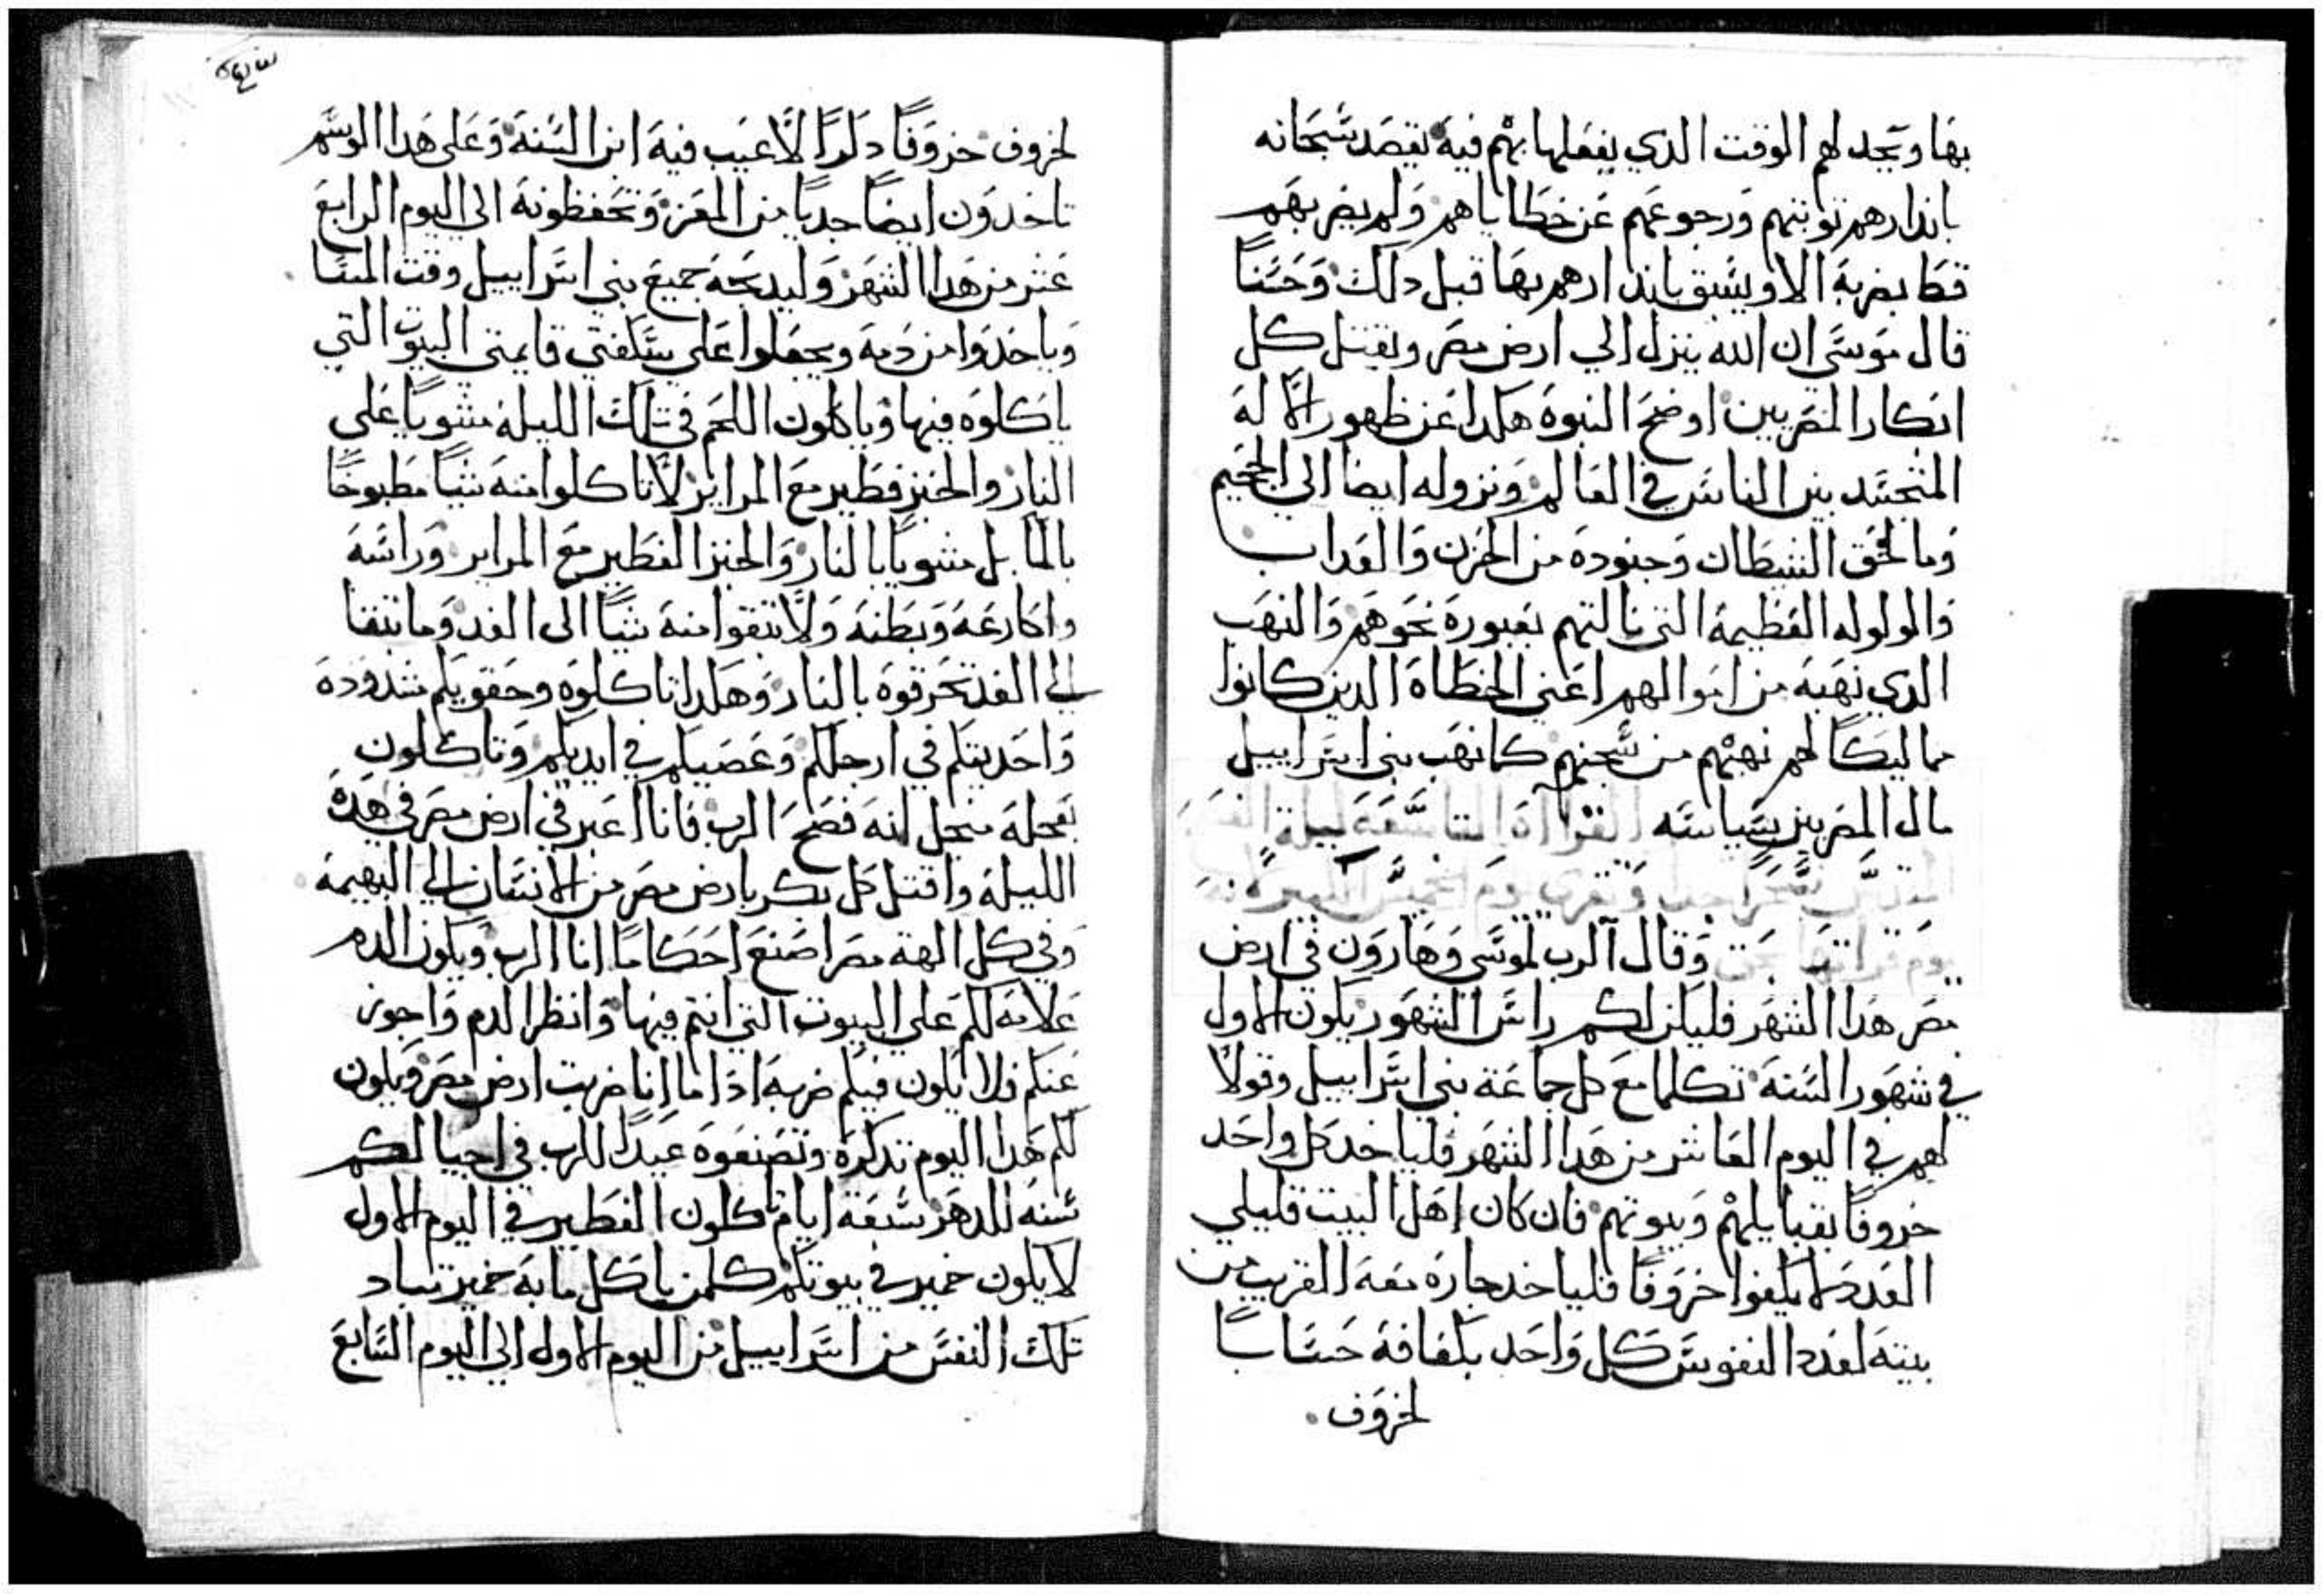 بها ويجد لهم الوقت الدي يفعلها بهم فيه يقصد سبحانه
باندارهم توبتهم ورجوعهم عن خطاياهم ولم يضربهم
قط بضربة الا ويسبق باندارهم بها قبل دلك وحسنا
قال موسى ان الله ينزل الي ارض مصر ويقتل كل
ابكار المصريين اوضح النبوه هكدا عن ظهور الاله
المتجسد بين الناس في العالم ونزوله ايضا الي الجحيم
وما لحق الشيطان وجنوده من الحزن والعداب
والولوله العظيمة التي نالتهم بعبوره نحوهم والنهب
الدي نهبه من اموالهم اعني الخطاة الدين كانوا
مماليكا لهم نهبهم من سجنهم كما نهب بني اسراييل
مال المصريين بسياسته القراآة التاسعة ليلة
يوم قراتها
وقال الرب لموسى وهارون في ارض
مصر هدا الشهر فليكن لكم راس الشهور يكون الاول
في شهور السنة تكلما مع كل جماعة بني اسراييل وقولا
لهم في اليوم العاشر من هدا الشهر فلياخد كل واحد
خروفا بقبايلهم وبيوتهم فان كان اهل البيت قليلي
العدد لا يكفوا خروفا فلياخد جاره معه القريب من
بيته لعدد النفوس كل واحد بكفافه حسابا
لخروف
لخروف خروفا دكرا لا عيب فيه ابن السنة وعلى هدا الوسم
تاخدون ايضا جديا من المعز وتحفظونه الي اليوم الرابع
عشر من هدا الشهر وليدبحه جميع بني اسراييل وقت المسا
وياخدوا من دمه ويجعلوا علي سكفتي قايمتي البيوت التي
ياكلوه فيها وياكلون اللحم في تلك الليلة مشويا علي
النار والخبز فطير مع المراير لا تاكلوا منه شيا مطبوخا
بالما بل مشويا بالنار والخبز الفطير مع المراير وراسه
واكارعه وبطنه ولا تبقوا منه شيا الى الغد وما تبقا
الي الغد تحرقوه بالنار وهكدا تاكلوه وحقويكم مشدودة
واحديتكم في ارجلكم وعصيكم في ايديكم وتاكلون
بعجلة منجل لنه فصح الرب فانا اعبر في ارض مصر في هده
الليلة واقتل كل بكر بارض مصر من الانسان الي البهيمة
وفي كل الهة مصر اصنع احكاما انا الرب ويكون الدم
علامة لكم علي البيوت التي انتم فيها وانظر الدم واجوز
عنكم فلا يكون فيكم ضربة اذا ما انا ضربت ارض مصر ويكون
لكم هدا اليوم تدكرة وتصنعوه عيدا للرب في اجيالكم
سنه للدهر سبعة ايام تاكلون الفطير في اليوم الاول
لا يكون خمير في بيوتكم كلمن ياكل ما به خمير تباد
تلك النفس من اسراييل من اليوم الاول الي اليوم السابع